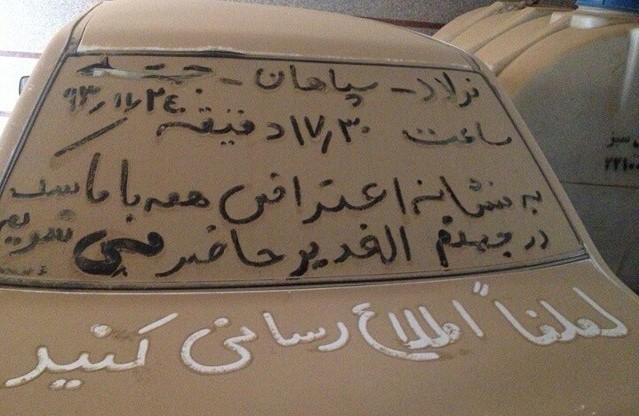 فولاد - سپاهان - جمعه
۹۳/۱۱/۲۴
ساعت ۱۷/۳۰ دقیقه
به نشانه اعتراض همه با ماسک
در جهنم الغدیر حاضر می شویم
لطفاً اطلاع رسانی کنید
سبز
۲۲۱۰۰